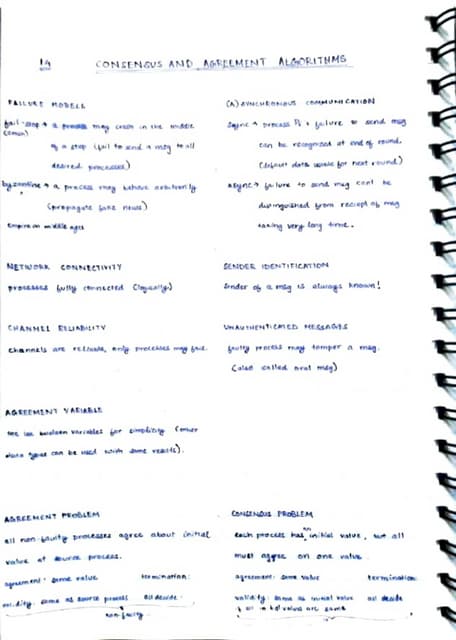 14
CONSENSUS AND AGREEMENT ALGORITHMS
FAILURE MODELS
fail-stop → a process may crash in the middle
(crash)
of a step (fail to send a msg to all
desired processes)
byzantine → a process may behave arbitrarily
(propagate fake news)
empire in middle ages
(A)SYNCHRONOUS COMMUNICATION
sync → process Pi's failure to send msg
can be recognised at end of round.
(default data usable for next round)
async → failure to send msg can't be
distinguished from reciept of msg
taking very long time.
NETWORK CONNECTIVITY
processes fully connected (logically)
SENDER IDENTIFICATION
Sender of a msg is always known!
CHANNEL RELIABILITY
channels are reliable, only processes may fail.
UNAUTHENTICATED MESSAGES
faulty process may tamper a msg.
(also called oral msg)
AGREEMENT VARIABLE
boolean variables for simplicity (other
data types can be used with same results).
AGREEMENT PROBLEM
all non-faulty processes agree about initial
value at source process.
agreement: same value termination:
validity: same as source process all decide
non-faulty
CONSENSUS PROBLEM
each process has an initial value, but all
must agree on one value
agreement: same value termination:
validity: same as initial value all decide
if all initial values are same